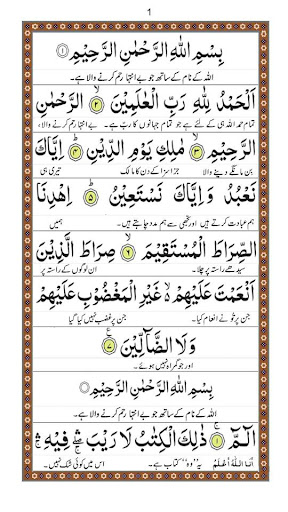 1
بِسْمِ اللّٰهِ الرَّحْمٰنِ الرَّحِيْمِ ۝۱
اللہ کے نام کے ساتھ جو بے انتہا رحم کرنے والا ہے۔
اَلْحَمْدُ لِلّٰهِ رَبِّ الْعٰلَمِيْنَ ۝۲ الرَّحْمٰنِ
تمام حمد اللہ ہی کے لئے ہے جو تمام جہانوں کا ربّ ہے۔ بے انتہا رحم کرنے والا،
الرَّحِيْمِ ۝۳ مٰلِكِ يَوْمِ الدِّيْنِ ۝۴ اِيَّاكَ
بن مانگے دینے والا جزا سزا کے دن کا مالک تیری ہی
نَعْبُدُ وَاِيَّاكَ نَسْتَعِيْنُ ۝۵ اِهْدِنَا
ہم عبادت کرتے ہیں اور تجھی سے ہم مدد چاہتے ہیں۔ ہمیں
الصِّرَاطَ الْمُسْتَقِيْمَ ۝۶ صِرَاطَ الَّذِيْنَ
سیدھے راستہ پر چلا۔ ان لوگوں کے راستہ پر
اَنْعَمْتَ عَلَيْهِمْ ۙ غَيْرِ الْمَغْضُوْبِ عَلَيْهِمْ
جن پر تُو نے انعام کیا جن پر غضب نہیں کیا گیا
وَلَا الضَّآلِّيْنَ ۝۷
اور جو گمراہ نہیں ہوئے۔
بِسْمِ اللّٰهِ الرَّحْمٰنِ الرَّحِيْمِ ۝
اللہ کے نام کے ساتھ جو بے انتہا رحم کرنے والا ہے۔
الٓمّٓ ۝۱ ذٰلِكَ الْكِتٰبُ لَا رَيْبَ ۛ فِيْهِ ۛ
اَنَا اللّٰهُ اَعْلَمُ یہ ”وہ“ کتاب ہے۔ اس میں کوئی شک نہیں۔